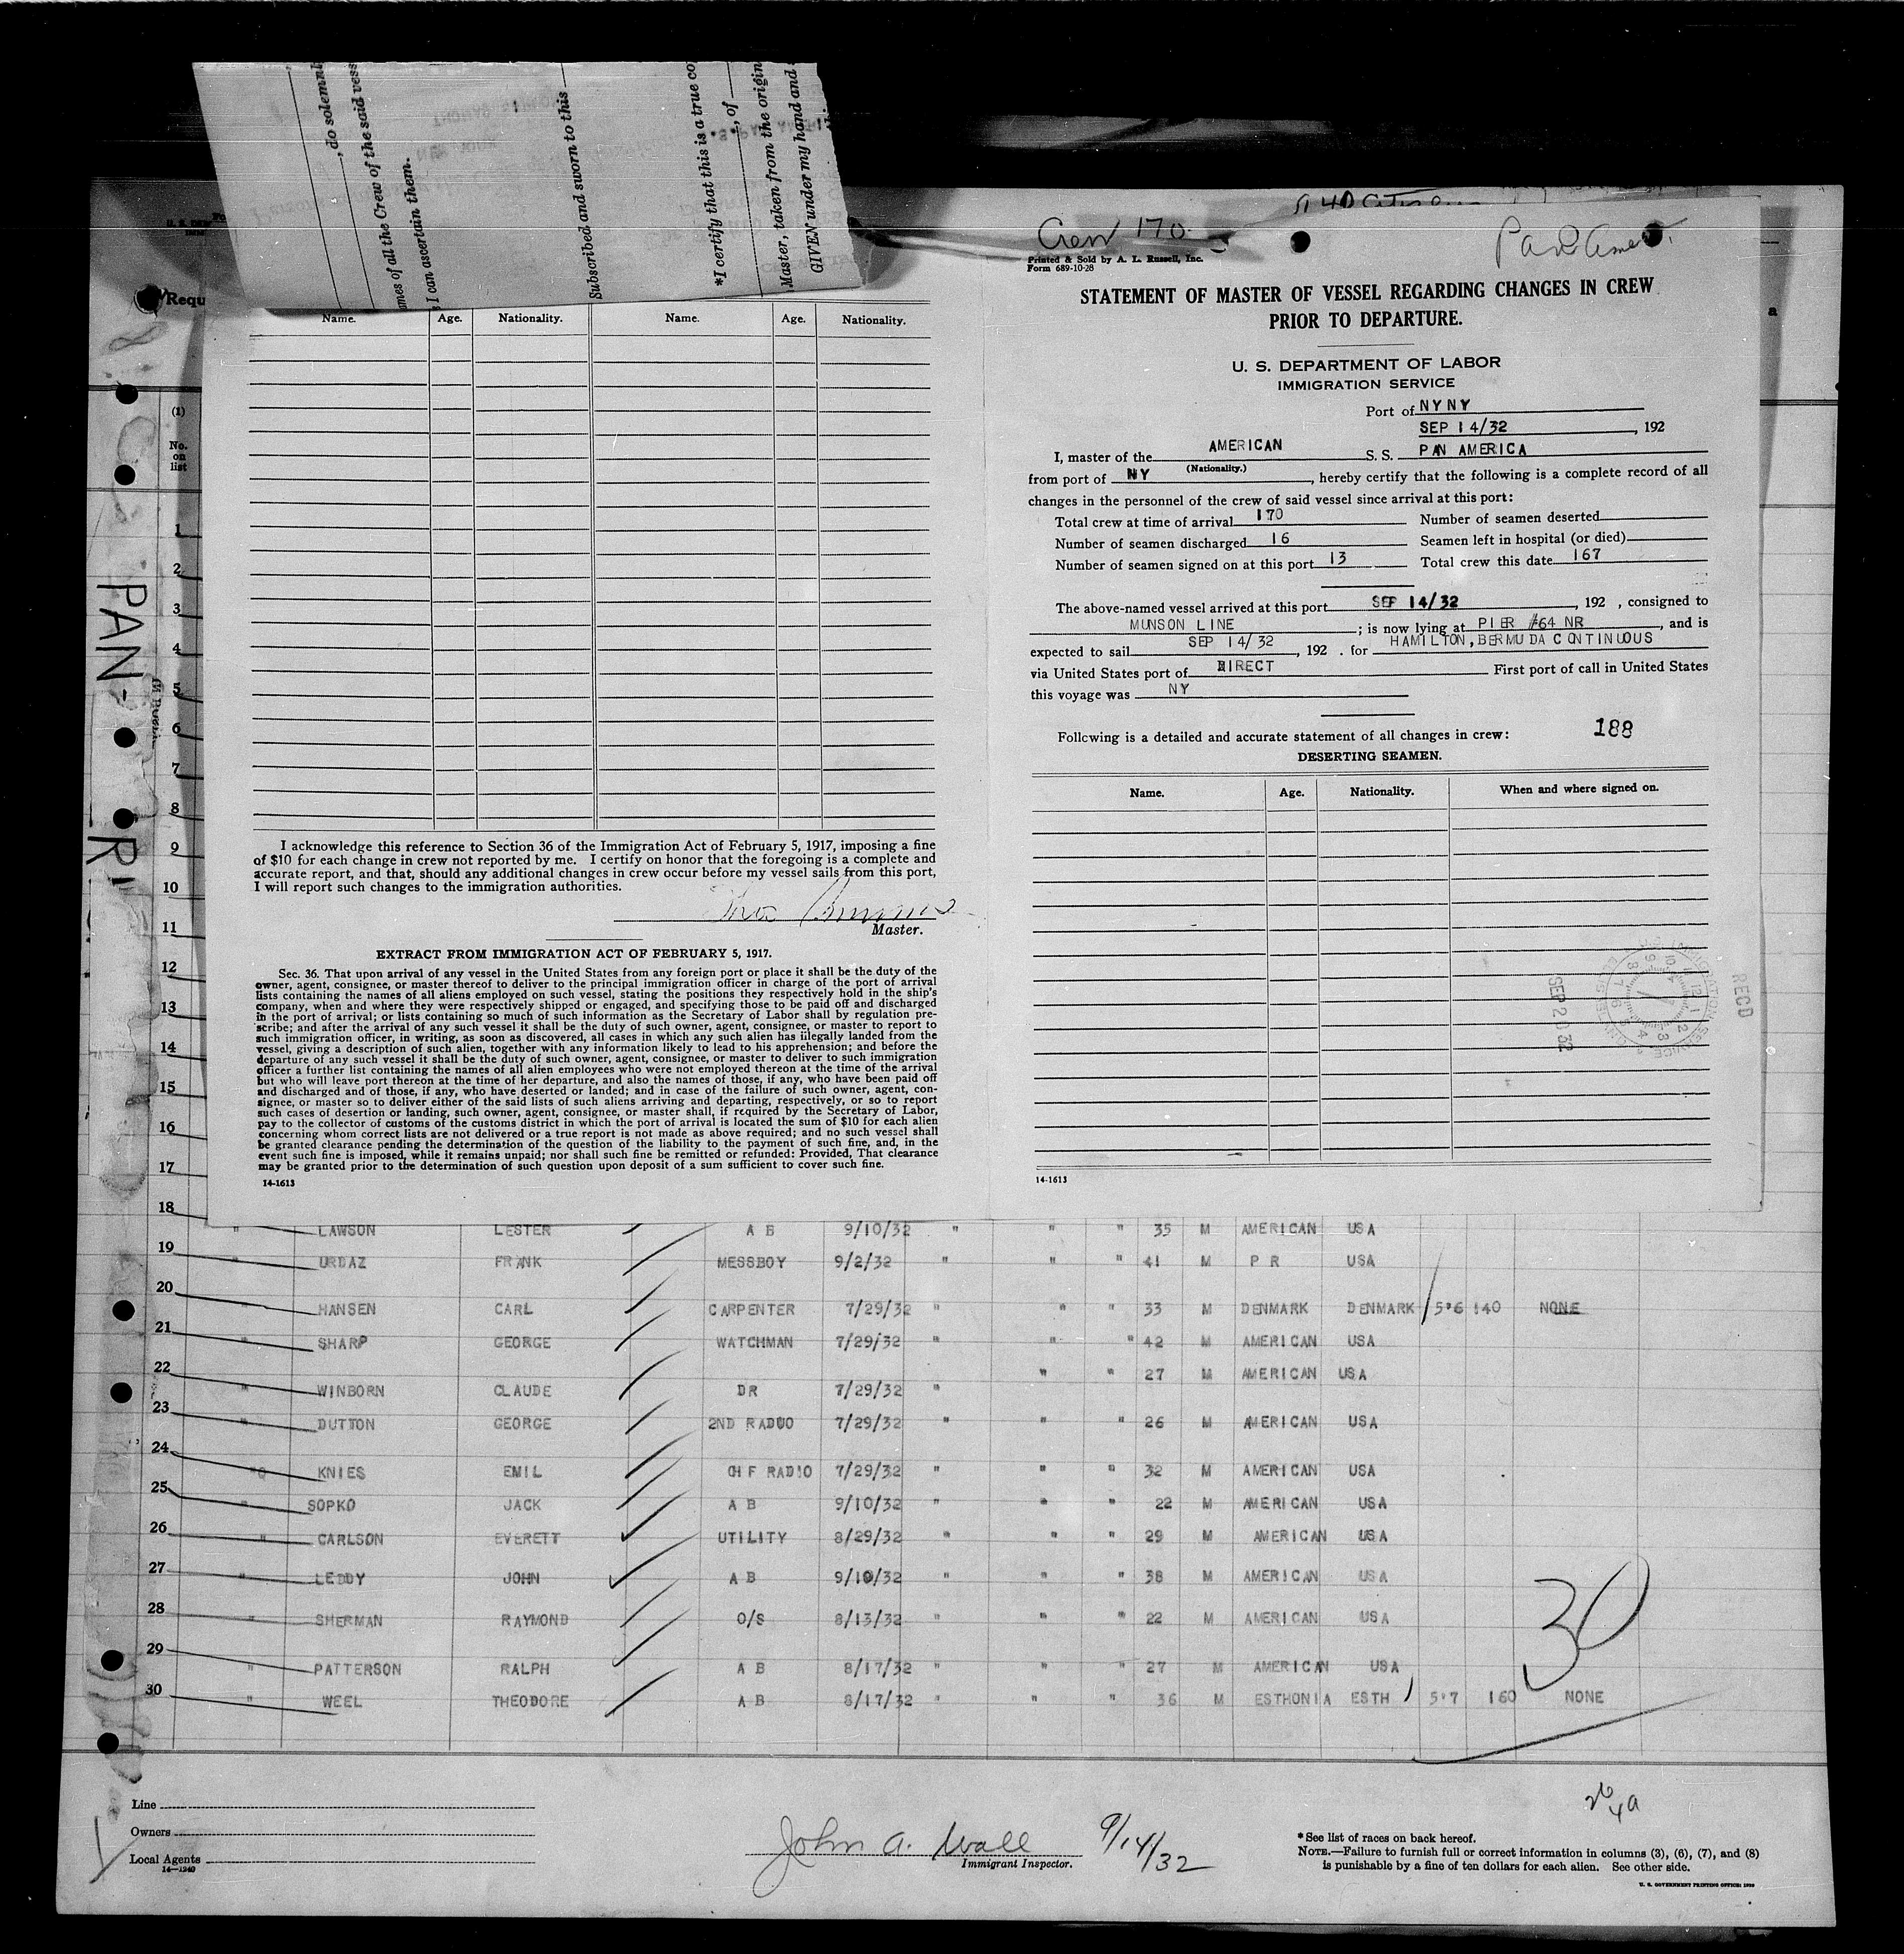 , do solemnl
ames of all the Crew of the said vess
I can ascertain them.
Subscribed and sworn to this
*I certify that this is a true co
, of
Master, taken from the origin
GIVEN under my hand and
Requ
(1)
No.
on
list
PAN-
Name. Age. Nationality. Name. Age. Nationality.
I acknowledge this reference to Section 36 of the Immigration Act of February 5, 1917, imposing a fine
of $10 for each change in crew not reported by me. I certify on honor that the foregoing is a complete and
accurate report, and that, should any additional changes in crew occur before my vessel sails from this port,
I will report such changes to the immigration authorities.
Master.
EXTRACT FROM IMMIGRATION ACT OF FEBRUARY 5, 1917.
Sec. 36. That upon arrival of any vessel in the United States from any foreign port or place it shall be the duty of the
owner, agent, consignee, or master thereof to deliver to the principal immigration officer in charge of the port of arrival
lists containing the names of all aliens employed on such vessel, stating the positions they respectively hold in the ship's
company, when and where they were respectively shipped or engaged, and specifying those to be paid off and discharged
in the port of arrival; or lists containing so much of such information as the Secretary of Labor shall by regulation pre-
scribe; and after the arrival of any such vessel it shall be the duty of such owner, agent, consignee, or master to report to
such immigration officer, in writing, as soon as discovered, all cases in which any such alien has illegally landed from the
vessel, giving a description of such alien, together with any information likely to lead to his apprehension; and before the
departure of any such vessel it shall be the duty of such owner, agent, consignee, or master to deliver to such immigration
officer a further list containing the names of all alien employees who were not employed thereon at the time of the arrival
but who will leave port thereon at the time of her departure, and also the names of those, if any, who have been paid off
and discharged and of those, if any, who have deserted or landed; and in case of the failure of such owner, agent, con-
signee, or master so to deliver either of the said lists of such aliens arriving and departing, respectively, or so to report
such cases of desertion or landing, such owner, agent, consignee, or master shall, if required by the Secretary of Labor,
pay to the collector of customs of the customs district in which the port of arrival is located the sum of $10 for each alien
concerning whom correct lists are not delivered or a true report is not made as above required; and no such vessel shall
be granted clearance pending the determination of the question of the liability to the payment of such fine, and, in the
event such fine is imposed, while it remains unpaid; nor shall such fine be remitted or refunded: Provided, That clearance
may be granted prior to the determination of such question upon deposit of a sum sufficient to cover such fine.
14-1613
Crew 170
Pan Amer.
Printed & Sold by A. L. Russell, Inc.
Form 689-10-28
STATEMENT OF MASTER OF VESSEL REGARDING CHANGES IN CREW
PRIOR TO DEPARTURE.
U. S. DEPARTMENT OF LABOR
IMMIGRATION SERVICE
Port of NYNY
SEP 14/32, 192
I, master of the AMERICAN S. S. PAN AMERICA
(Nationality.)
from port of NY, hereby certify that the following is a complete record of all
changes in the personnel of the crew of said vessel since arrival at this port:
Total crew at time of arrival 170 Number of seamen deserted
Number of seamen discharged 16 Seamen left in hospital (or died)
Number of seamen signed on at this port 13 Total crew this date 167
The above-named vessel arrived at this port SEP 14/32, 192 , consigned to
MUNSON LINE; is now lying at PIER #64 NR, and is
expected to sail SEP 14/32, 192 . for HAMILTON, BERMUDA CONTINUOUS
via United States port of DIRECT First port of call in United States
this voyage was NY
188
Following is a detailed and accurate statement of all changes in crew:
DESERTING SEAMEN.
Name. Age. Nationality. When and where signed on.
RECD
SEP 20 32
14-1613
1
2
3
4
5
6
7
8
9
10
11
12
13
14
15
16
17
18 " LAWSON LESTER A B 9/10/32 " " " 35 M AMERICAN USA
19 " URDAZ FRANK MESSBOY 9/2/32 " " " 41 M P R USA
20 " HANSEN CARL CARPENTER 7/29/32 " " " 33 M DENMARK DENMARK 5'6 140 NONE
21 " SHARP GEORGE WATCHMAN 7/29/32 " " " 42 M AMERICAN USA
22 " WINBORN CLAUDE DR 7/29/32 " " " 27 M AMERICAN USA
23 " DUTTON GEORGE 2ND RADUO 7/29/32 " " " 26 M AMERICAN USA
24 " KNIES EMIL CHF RADIO 7/29/32 " " " 32 M AMERICAN USA
25 " SOPKO JACK A B 9/10/32 " " " 22 M AMERICAN USA
26 " CARLSON EVERETT UTILITY 8/29/32 " " " 29 M AMERICAN USA
27 " LEDDY JOHN A B 9/10/32 " " " 38 M AMERICAN USA
28 " SHERMAN RAYMOND O/S 8/13/32 " " " 22 M AMERICAN USA
29 " PATTERSON RALPH A B 8/17/32 " " " 27 M AMERICAN USA
30 " WEEL THEODORE A B 8/17/32 " " " 36 M ESTHONIA ESTH 5'7 160 NONE
30
Line
Owners
Local Agents
14—1240
John A. Wall 9/14/32
Immigrant Inspector.
*See list of races on back hereof.
NOTE.—Failure to furnish full or correct information in columns (3), (6), (7), and (8)
is punishable by a fine of ten dollars for each alien. See other side.
U. S. GOVERNMENT PRINTING OFFICE: 1930